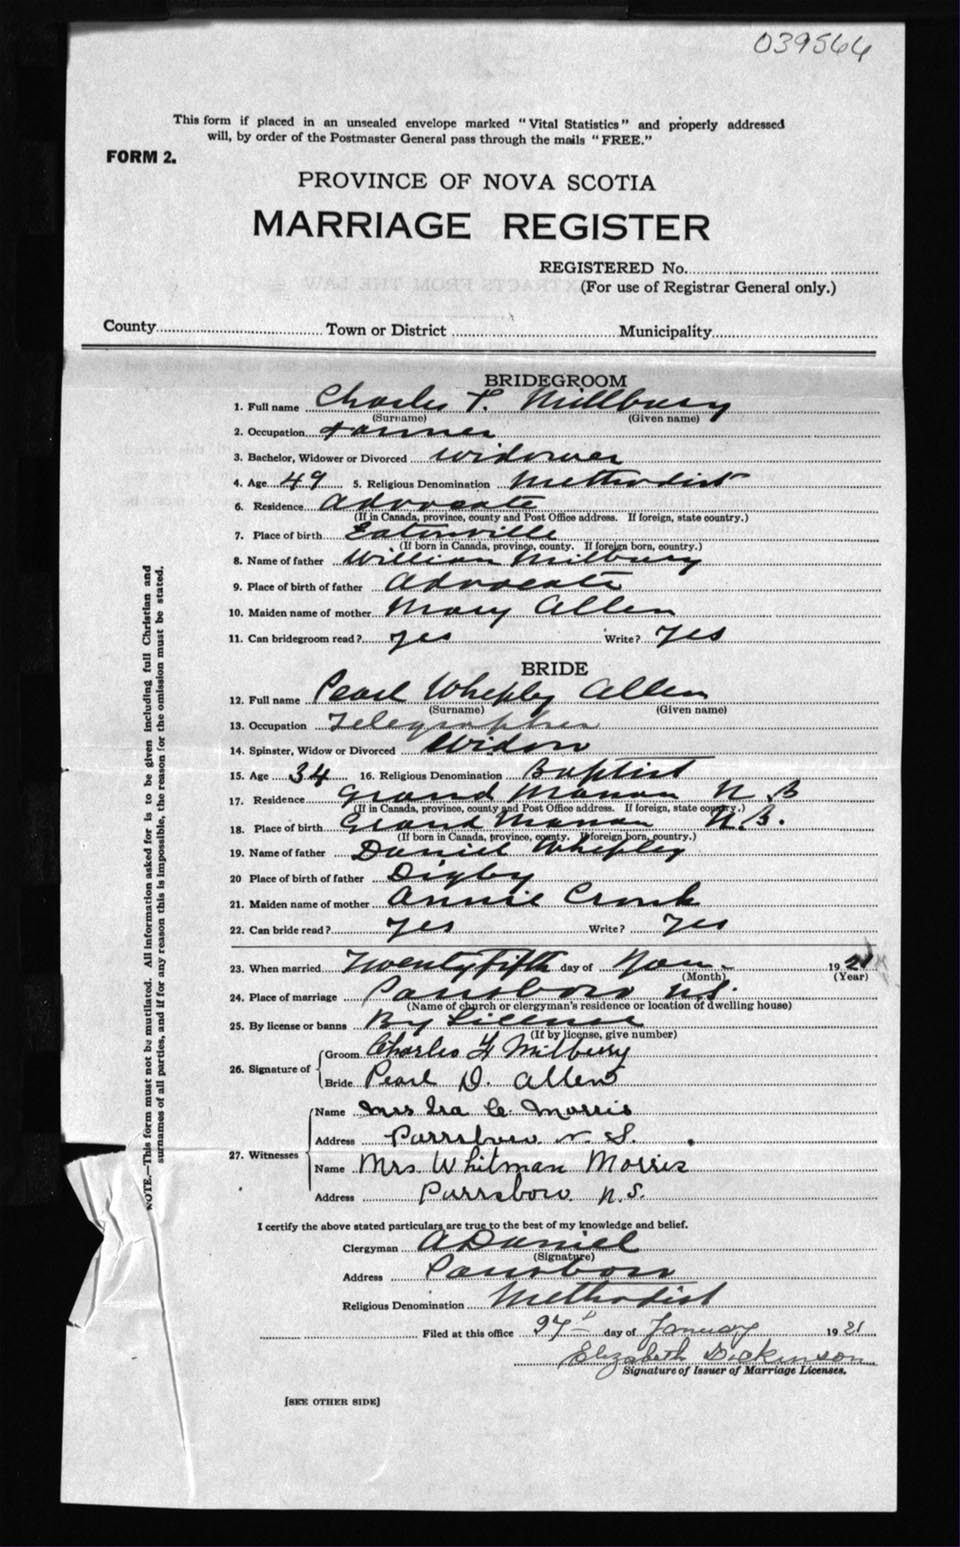 039566
This form if placed in an unsealed envelope marked "Vital Statistics" and properly addressed
will, by order of the Postmaster General pass through the mails "FREE."
FORM 2.
PROVINCE OF NOVA SCOTIA
MARRIAGE REGISTER
REGISTERED No.
(For use of Registrar General only.)
County Town or District Municipality
BRIDEGROOM
1. Full name Charles F. Millbury
(Surname) (Given name)
2. Occupation Farmer
3. Bachelor, Widower or Divorced widower
4. Age 49 5. Religious Denomination Methodist
6. Residence Advocate
(If in Canada, province, county and Post Office address. If foreign, state country.)
7. Place of birth Eatonville
(If born in Canada, province, county. If foreign born, country.)
8. Name of father William Milbury
9. Place of birth of father Advocate
10. Maiden name of mother Mary Allen
11. Can bridegroom read? yes Write? Yes
BRIDE
12. Full name Pearl Whepley Allen
(Surname) (Given name)
13. Occupation Telegrapher
14. Spinster, Widow or Divorced Widow
15. Age 34 16. Religious Denomination Baptist
17. Residence Grand Manan N.B
(If in Canada, province, county and Post Office address. If foreign, state country.)
18. Place of birth Grand Manan N.B.
(If born in Canada, province, county. If foreign born, country.)
19. Name of father Daniel Whepley
20 Place of birth of father Digby
21. Maiden name of mother Annie Cronk
22. Can bride read? Yes Write? Yes
23. When married Twenty Fifth day of Nov. 192
(Month) (Year)
24. Place of marriage Parrsboro N.S.
(Name of church or clergyman's residence or location of dwelling house)
25. By license or banns By License
(If by license, give number)
26. Signature of Groom Charles F Milbury
Bride Pearl D. Allen
27. Witnesses Name Mrs Ira C. Morris
Address Parrsboro N.S.
Name Mrs. Whitman Morris
Address Parrsboro N.S.
I certify the above stated particulars are true to the best of my knowledge and belief.
Clergyman A Daniel
(Signature)
Address Parrsboro
Religious Denomination Methodist
Filed at this office 27th day of January 1921
Elizabeth Dickinson
Signature of Issuer of Marriage Licenses.
[SEE OTHER SIDE]
NOTE.—This form must not be mutilated. All information asked for is to be given including full Christian and
surnames of all parties, and if for any reason this is impossible, the reason for the omission must be stated.